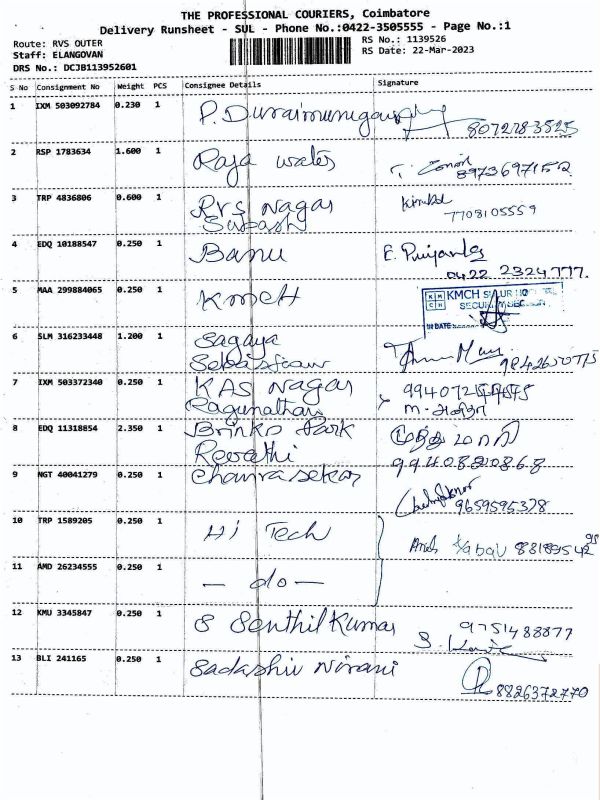 THE PROFESSIONAL COURIERS, Coimbatore
Delivery Runsheet - SUL - Phone No.:0422-3505555 - Page No.:1
Route: RVS OUTER
RS No.: 1139526
Staff: ELANGOVAN
RS Date: 22-Mar-2023
DRS No.: DCJB113952601
S No Consignment No Weight PCS Consignee Details Signature
1 IXM 503092784 0.230 1 P. Duraimurugan 8072783525
2 RSP 1783634 1.600 1 Raja water
8973697152
3 TRP 4836806 0.600 1 Rvs Nagar
Subash 7708105559
4 EDQ 10188547 0.250 1 Banu E. Priyanka
0422 2324777.
5 MAA 299884065 0.250 1 KMCH KMCH SULUR HOSPITAL
SECURITY SECTION
IN DATE
6 SLM 316233448 1.200 1 Sagaya
Sebastian 9842650775
7 IXM 503372340 0.250 1 KAS Nagar
Ragunathan
8 EDQ 11318854 2.350 1 Brinks Park முத்துமாரி
Revathi 9940820868
9 NGT 40041279 0.250 1 Chanrasekar
9659595378
10 TRP 1589205 0.250 1 Hi Tech
11 AMD 26234555 0.250 1 — do —
12 KMU 3345847 0.250 1 S Senthil Kumar 9751488877
13 BLI 241165 0.250 1 Sadashiv Nirani
8826372770